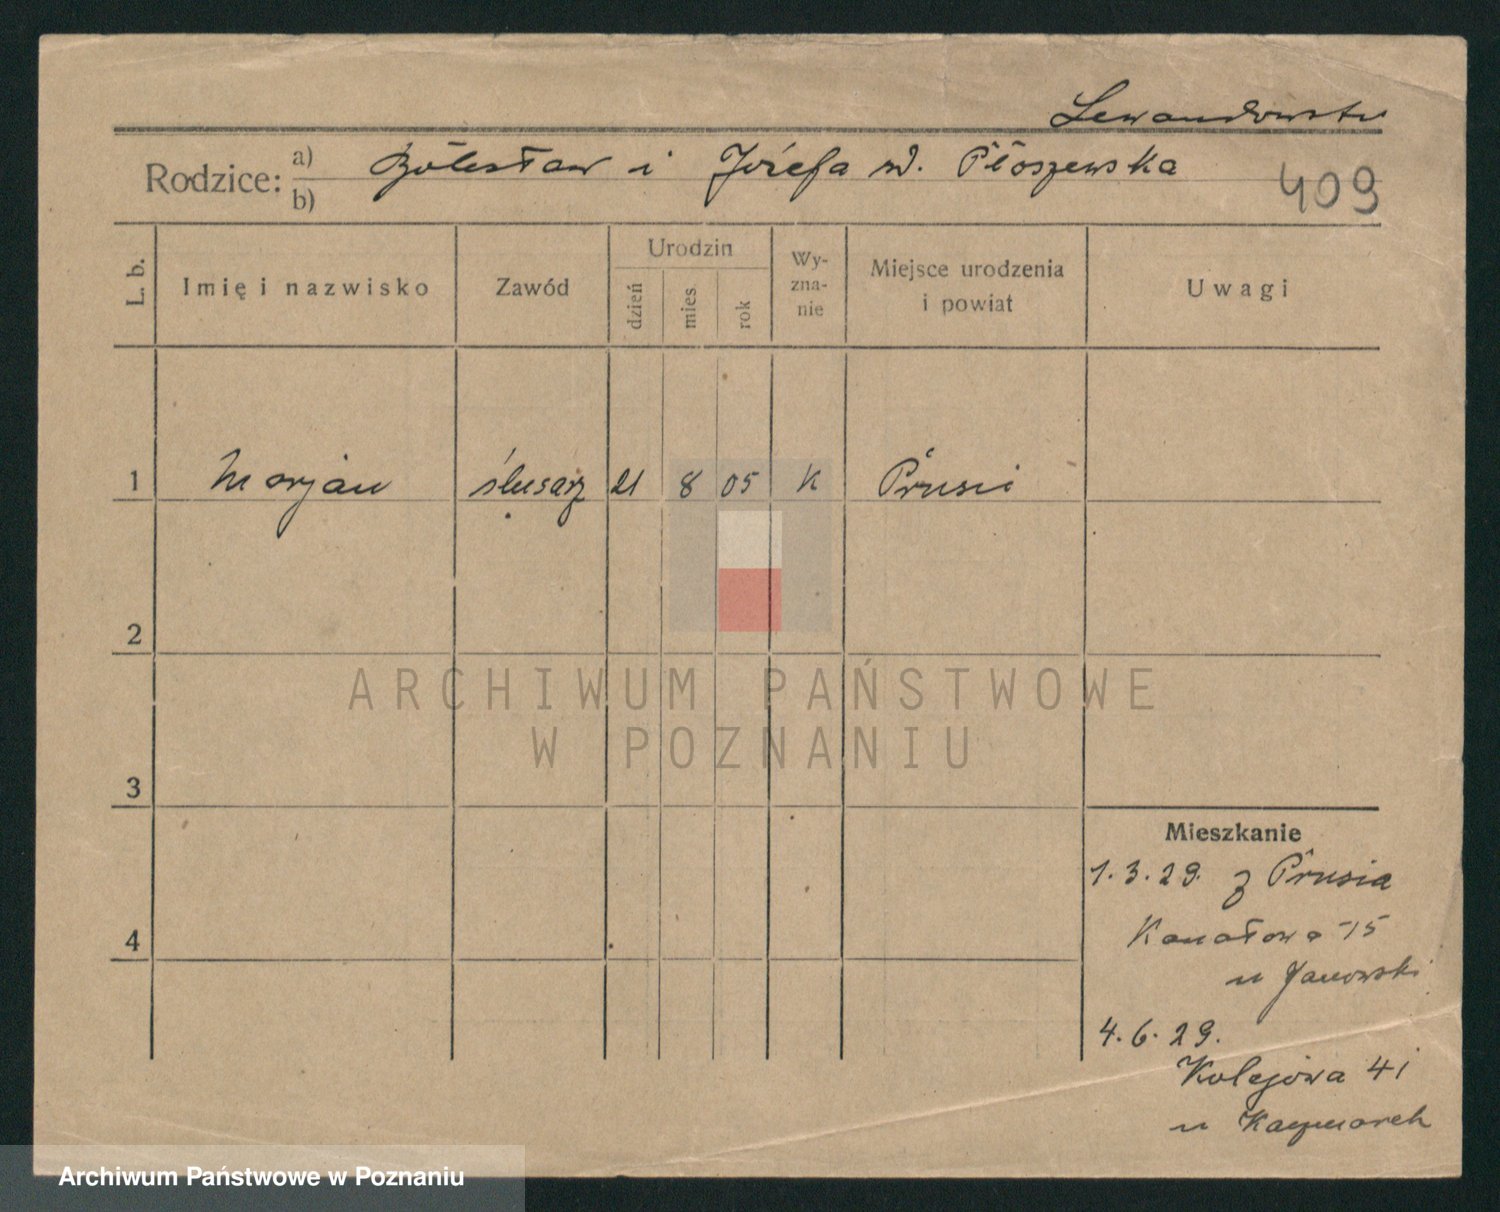 Lewandowski
Rodzice: a) Bolesław i Józefa zd. Płoszewska
b)
409
L. b. Imię i nazwisko Zawód Urodzin dzień mies. rok Wy-zna-nie Miejsce urodzenia i powiat Uwagi
1 Marjan ślusarz 21 8 05 K Prusie
2
ARCHIWUM PAŃSTWOWE
W POZNANIU
3
Mieszkanie
1.3.29. z Prusia
Kanałowa 15
u Janowski
4
4.6.29.
Kolejowa 41
u Kaczmarek
Archiwum Państwowe w Poznaniu